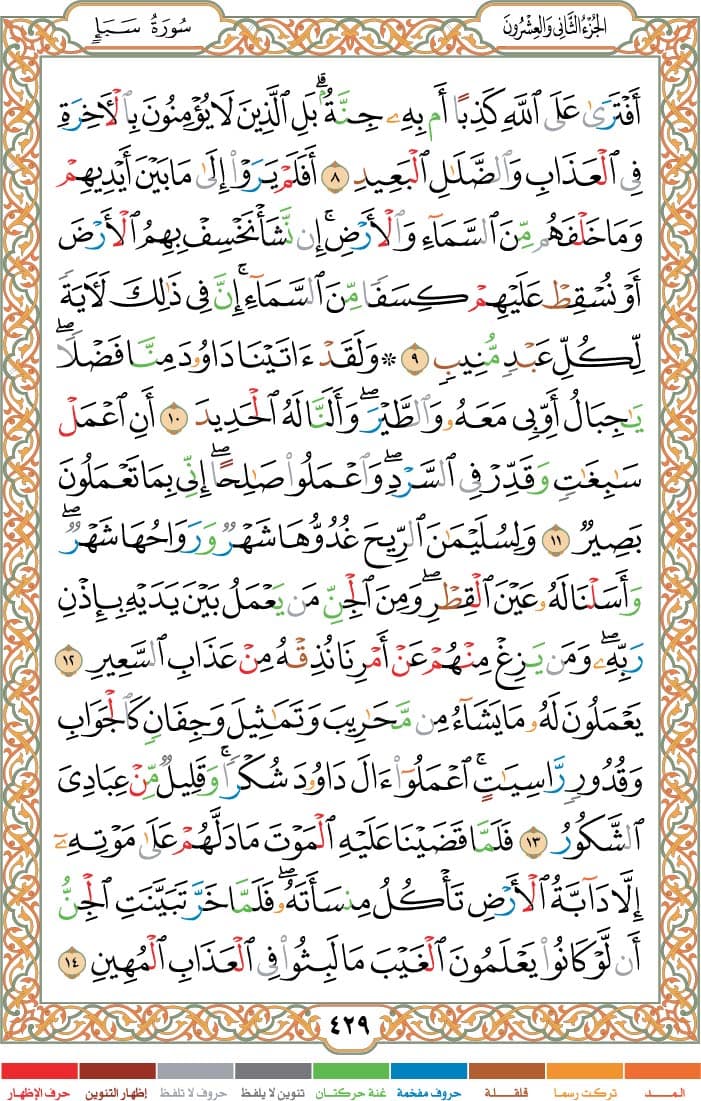 الجُزْءُ الثَّانِي وَالعِشْرُونَ
سُورَةُ سَبَإٍ
أَفْتَرَىٰ عَلَى ٱللَّهِ كَذِبًا أَم بِهِۦ جِنَّةُۢۗ بَلِ ٱلَّذِينَ لَا يُؤْمِنُونَ بِٱلْأَخِرَةِ
فِى ٱلْعَذَابِ وَٱلضَّلَٰلِ ٱلْبَعِيدِ ٨ أَفَلَمْ يَرَوْا۟ إِلَىٰ مَا بَيْنَ أَيْدِيهِمْ
وَمَا خَلْفَهُم مِّنَ ٱلسَّمَآءِ وَٱلْأَرْضِۚ إِن نَّشَأْ نَخْسِفْ بِهِمُ ٱلْأَرْضَ
أَوْ نُسْقِطْ عَلَيْهِمْ كِسَفًا مِّنَ ٱلسَّمَآءِۚ إِنَّ فِى ذَٰلِكَ لَأَيَةً
لِّكُلِّ عَبْدٍ مُّنِيبٍ ٩ ۞ وَلَقَدْ ءَاتَيْنَا دَاوُۥدَ مِنَّا فَضْلًاۖ
يَٰجِبَالُ أَوِّبِى مَعَهُۥ وَٱلطَّيْرَۖ وَأَلَنَّا لَهُ ٱلْحَدِيدَ ١٠ أَنِ ٱعْمَلْ
سَٰبِغَٰتٍ وَقَدِّرْ فِى ٱلسَّرْدِۖ وَٱعْمَلُوا۟ صَٰلِحًاۖ إِنِّى بِمَا تَعْمَلُونَ
بَصِيرٌ ١١ وَلِسُلَيْمَٰنَ ٱلرِّيحَ غُدُوُّهَا شَهْرٌ وَرَوَاحُهَا شَهْرٌۖ
وَأَسَلْنَا لَهُۥ عَيْنَ ٱلْقِطْرِۖ وَمِنَ ٱلْجِنِّ مَن يَعْمَلُ بَيْنَ يَدَيْهِ بِإِذْنِ
رَبِّهِۦۖ وَمَن يَزِغْ مِنْهُمْ عَنْ أَمْرِنَا نُذِقْهُ مِنْ عَذَابِ ٱلسَّعِيرِ ١٢
يَعْمَلُونَ لَهُۥ مَا يَشَآءُ مِن مَّحَٰرِيبَ وَتَمَٰثِيلَ وَجِفَانٍ كَٱلْجَوَابِ
وَقُدُورٍ رَّاسِيَٰتٍۚ ٱعْمَلُوٓا۟ ءَالَ دَاوُۥدَ شُكْرًاۚ وَقَلِيلٌ مِّنْ عِبَادِىَ
ٱلشَّكُورُ ١٣ فَلَمَّا قَضَيْنَا عَلَيْهِ ٱلْمَوْتَ مَا دَلَّهُمْ عَلَىٰ مَوْتِهِۦٓ
إِلَّا دَآبَّةُ ٱلْأَرْضِ تَأْكُلُ مِنسَأَتَهُۥۖ فَلَمَّا خَرَّ تَبَيَّنَتِ ٱلْجِنُّ
أَن لَّوْ كَانُوا۟ يَعْلَمُونَ ٱلْغَيْبَ مَا لَبِثُوا۟ فِى ٱلْعَذَابِ ٱلْمُهِينِ ١٤
٤٢٩
المـــد تركت رسما قلقلة حروف مفخمة غنة حركتان تنوين لا يلفظ حروف لا تلفظ إظهار التنوين حرف الإظهار